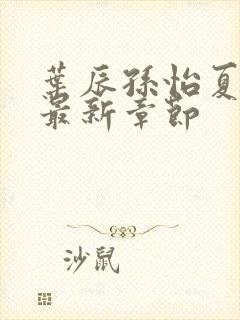 葉辰孫怡夏
最新章節
沙鼠